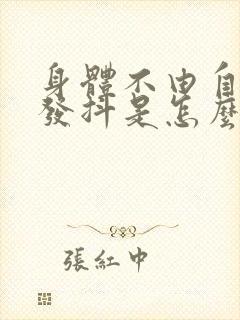 身體不由自
發抖是怎麼
張紅中